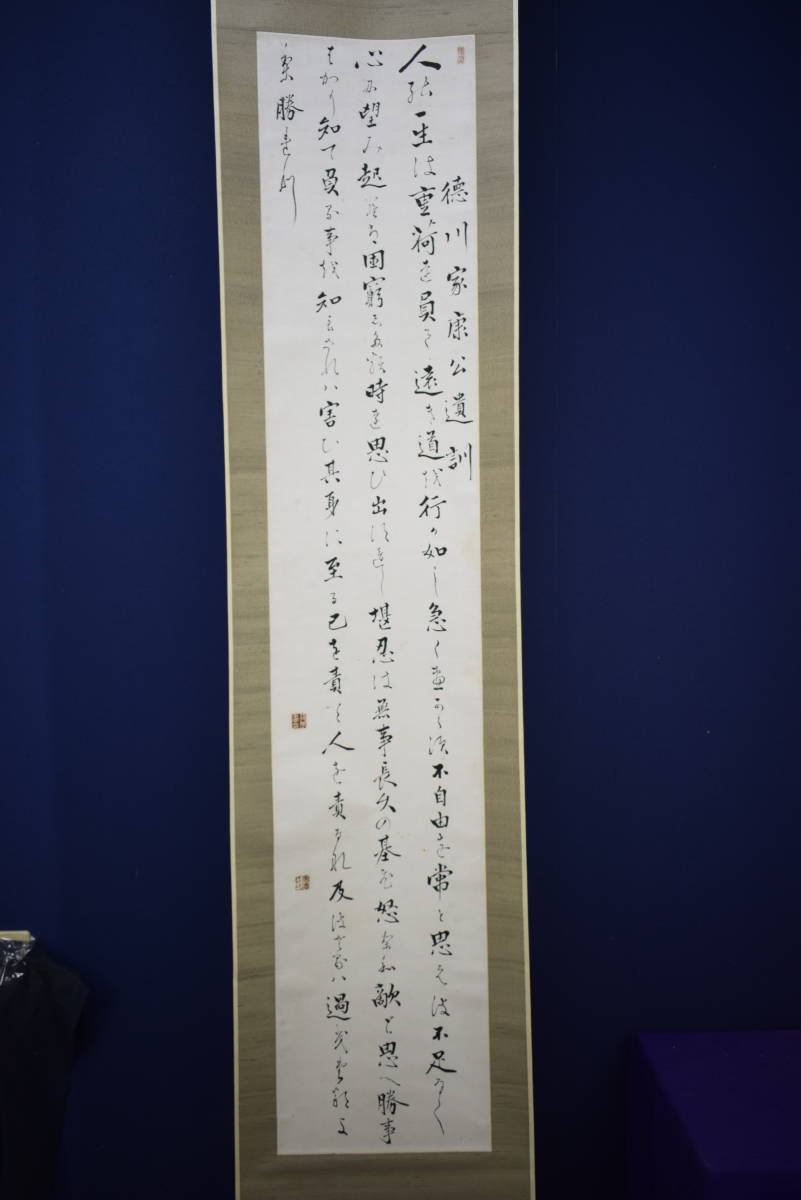 德川家康公遺訓
人能一生は重荷を負て遠き道を行か如し急くへからす不自由を常と思へは不足なく
心に望み起らは困窮したる時を思ひ出すへし堪忍は無事長久の基怒は敵と思へ勝事
はかり知て負る事を知らされハ害其身に至る己を責て人を責るな及はさるハ過たるよ
り勝れり